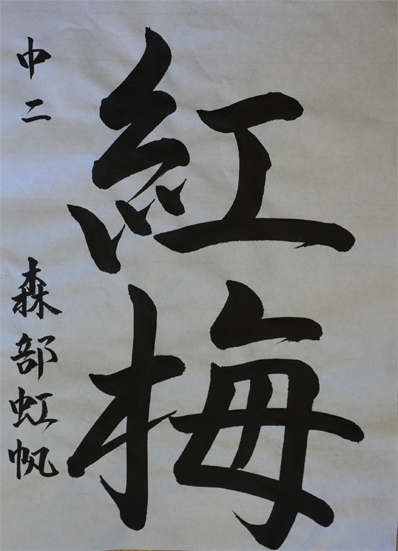 紅梅
中二 森部虹帆